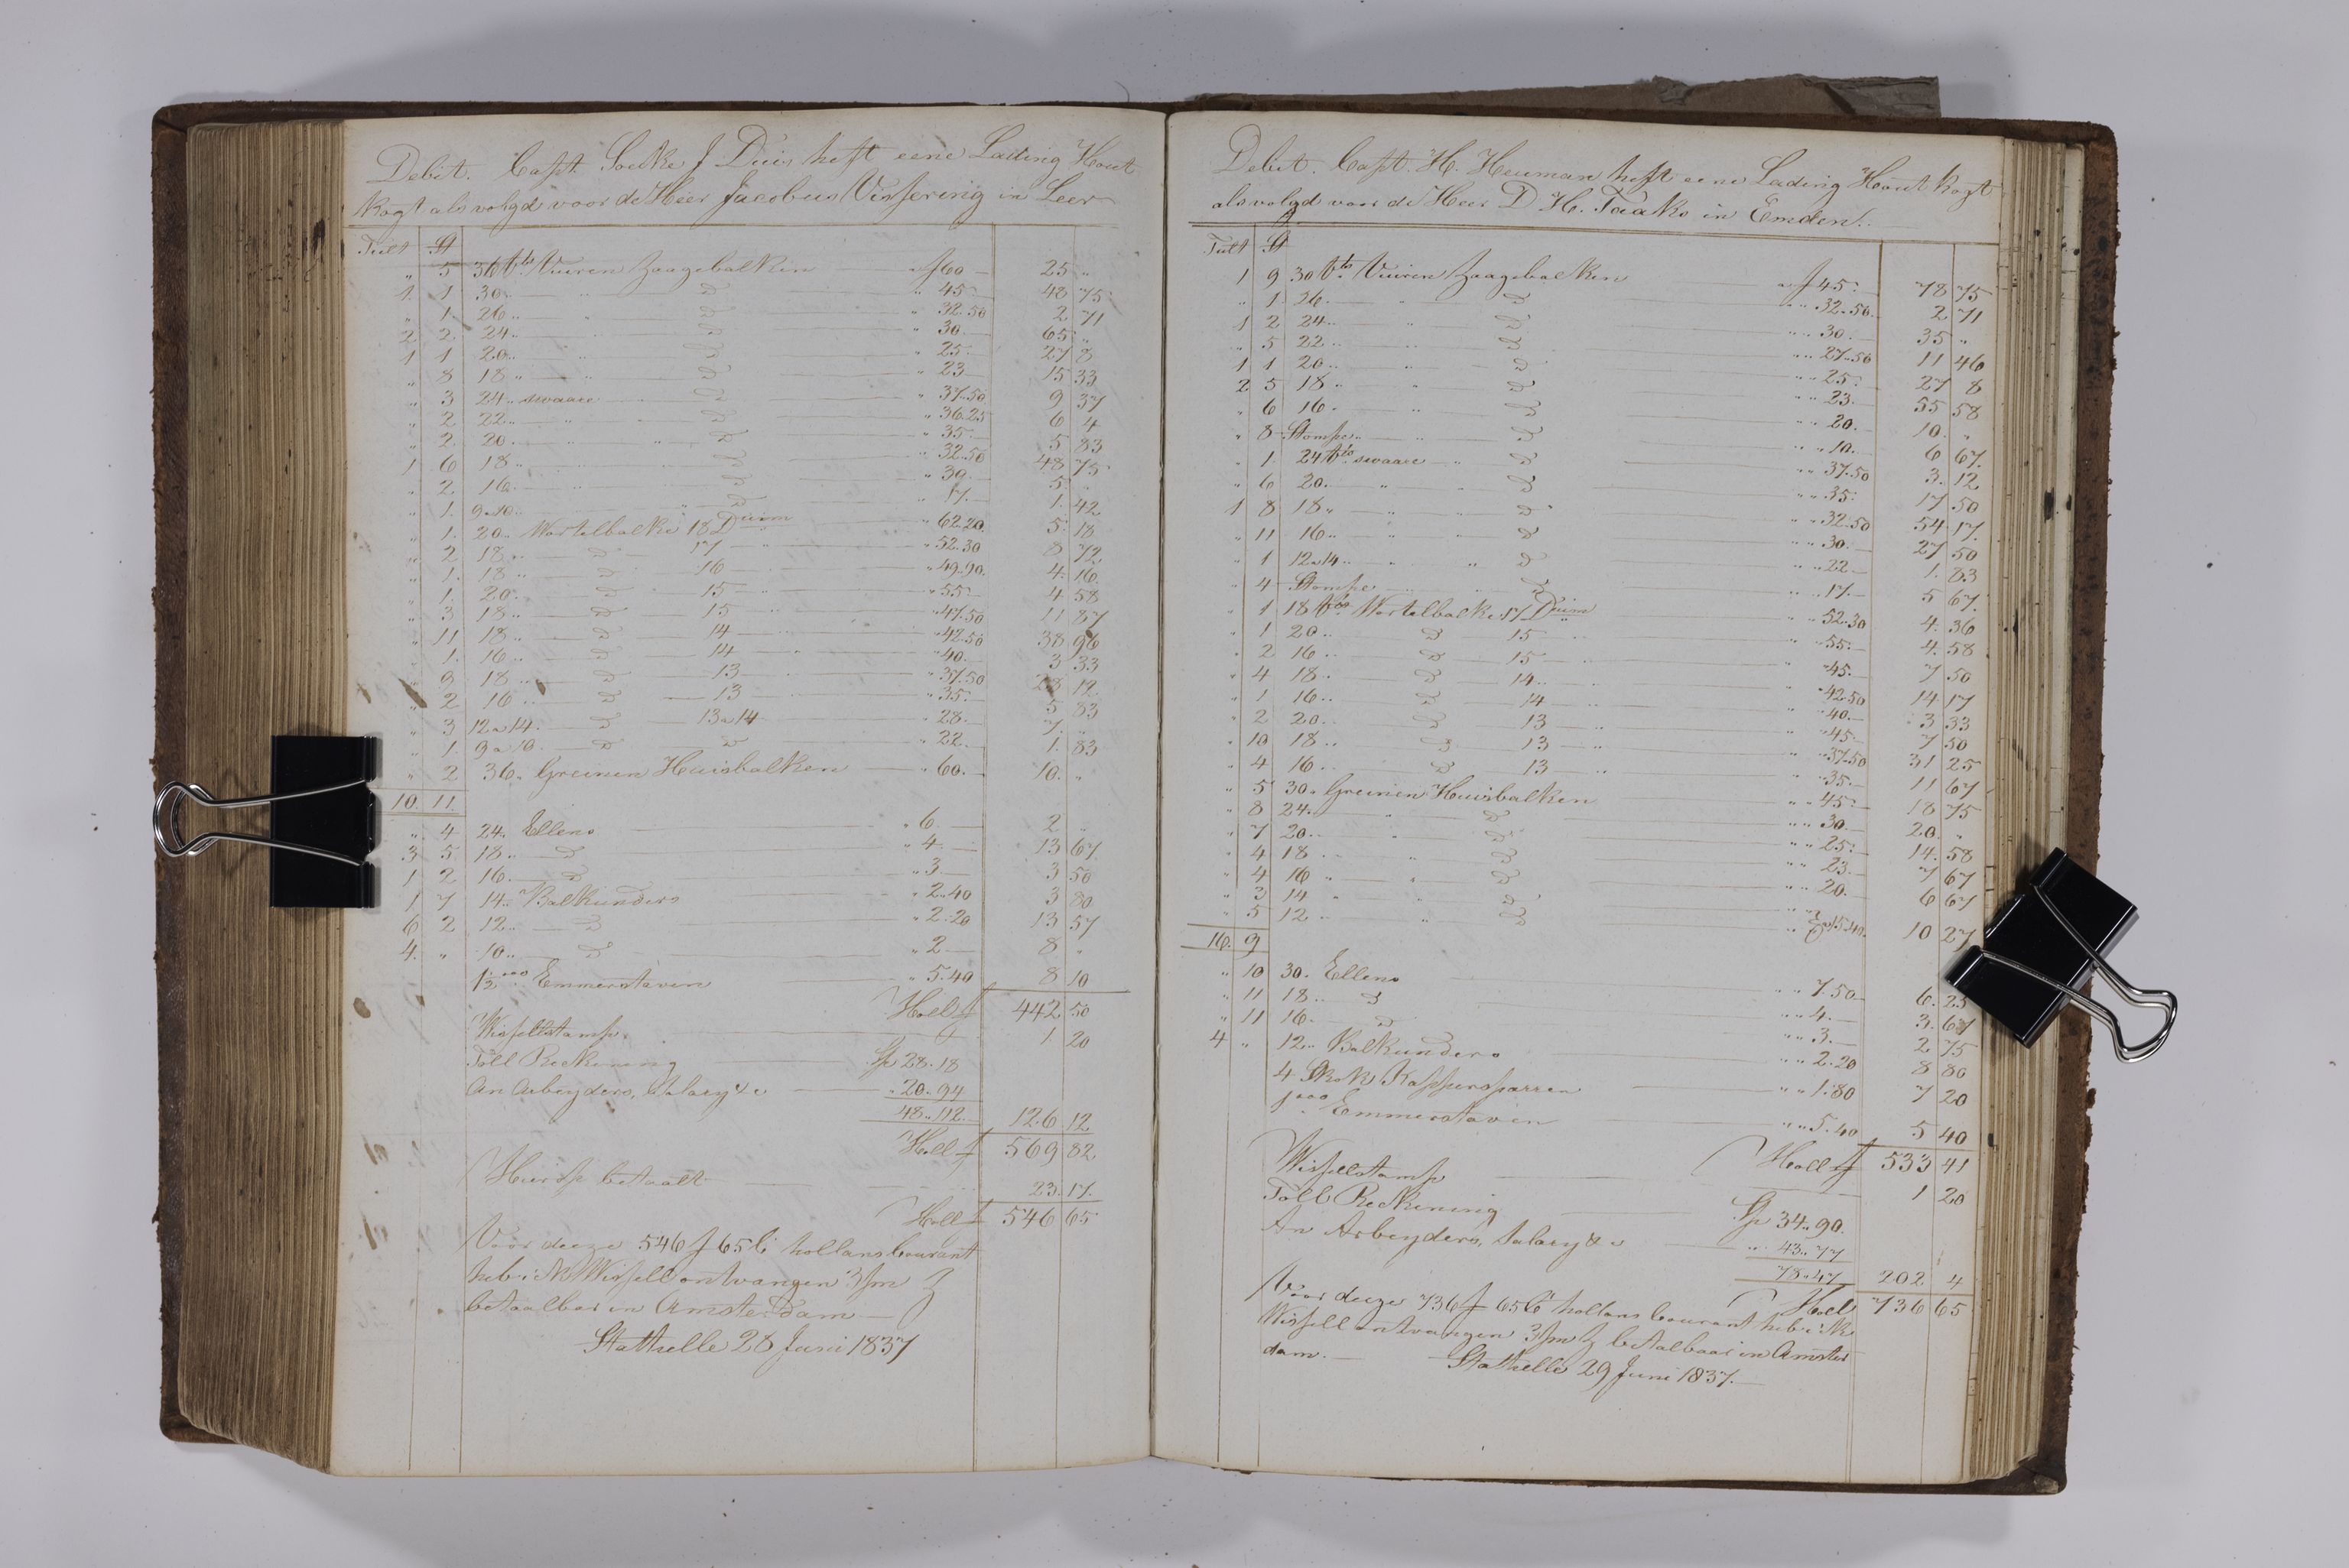 Debit. Capt. Soeke J Duis heft eene Lading Hout
kogt als volgd voor de Heer Jacobus Vissering in Leer
Tult St
„ 5 36 fts Vuiren Zaagebalken „ f 60 — 25 „
1 1 30 „ „ D „ 45 — 48 75
„ 1 26 „ „ D „ 32.50 2 71
2 2 24 „ „ D „ 30 — 65 „
1 1 20 „ „ D „ 25 — 27 8
„ 8 18 „ „ D „ 23 — 15 33
„ 3 24 „ swaare D „ 37.50 9 37
„ 2 22 „ „ D „ 36.25 6 4
„ 2 20 „ „ D „ 35 — 5 83
1 6 18 „ „ D „ 32.50 48 75
„ 2 16 „ „ D „ 30 — 5 „
„ 1 9 a 10 „ „ D „ 17 — 1 42
„ 1 20 „ Wortelbalke 18 Duim „ 62.20 5 18
„ 2 18 „ D 17 „ „ 52.30 8 72
„ 1 18 „ D 16 „ „ 49.90 4 16
„ 1 20 „ D 15 „ „ 55 — 4 58
„ 3 18 „ D 15 „ „ 47.50 11 87
„ 11 18 „ D 14 „ „ 42.50 38 96
„ 1 16 „ D 14 „ „ 40 — 3 33
„ 9 18 „ D 13 „ „ 37.50 28 12
„ 2 16 „ D 13 „ „ 35 — 5 83
„ 3 12 a 14 „ D 13 a 14 „ 28 — 7 „
„ 1 9 a 10 „ D D „ 22 — 1 83
„ 2 36 „ Greinen Huisbalken „ 60 — 10 „
10 11
„ 4 24 „ Ellens „ 6 — 2 „
3 5 18 „ D „ 4 — 13 67
1 2 16 „ D „ 3 — 3 50
1 7 14 „ Balkunders „ 2.40 3 80
6 2 12 „ D „ 2.20 13 57
4 „ 10 „ D „ 2 — 8 „
1½ 000 Emmerstaven „ 5.40 8 10
Holl f 442 50
Wissellstamp 1 20
Toll Reckening Sp 28.18
An Arbeyders, Salary & c „ 20.94
48.112 126 12
Holl f 569 82
Huirsp betaalt 23 17
Holl f 546 65
Voor deeze 546 f 65 C hollans Courant
heb ik Wissell ontvangen 3/m
betaalbar in Amsterdam —
Stathelle 28 Juni 1837
Debit. Capt. H. Heuman heft eene Lading Hout kogt
als volgd voor de Heer D H. Taaks in Emden.
Tult St
1 9 30 fts Vuiren Zaagebalken a f 45 — 78 75
„ 1 26 „ „ D „ 32.50 2 71
1 2 24 „ „ D „ 30 — 35 „
„ 5 22 „ „ D „ 27.50 11 46
1 1 20 „ „ D „ 25 — 27 8
2 5 18 „ „ D „ 23 — 55 58
„ 6 16 „ „ D „ 20 — 10 „
„ 8 Stompe „ „ D „ 10 — 6 67
„ 1 24 fts swaare „ D „ 37.50 3 12
„ 6 20 „ „ D „ 35 — 17 50
1 8 18 „ „ D „ 32.50 54 17
„ 11 16 „ „ D „ 30 — 27 50
„ 1 12 a 14 „ „ D „ 22 — 1 83
„ 4 Stompe „ „ D „ 17 — 5 67
„ 1 18 fts Wortelbalke 17 Duim „ 52.30 4 36
„ 1 20 „ D 15 „ „ 55 — 4 58
„ 2 16 „ D 15 „ 45 — 7 50
„ 4 18 „ D 14 „ „ 42.50 14 17
„ 1 16 „ D 14 „ „ 40 — 3 33
„ 2 20 „ D 13 „ „ 45 — 7 50
„ 10 18 „ D 13 „ „ 37.50 31 25
„ 4 16 „ D 13 „ „ 35 — 11 67
„ 5 30 „ Greinen Huisbalken „ 45 — 18 75
„ 8 24 „ „ D „ 30 — 20 „
„ 7 20 „ „ D „ 25 — 14 58
„ 4 18 „ „ D „ 23 — 7 67
„ 4 16 „ „ D „ 20 — 6 67
„ 3 14 „ „ D
„ 5 12 „ „ D „ 15.40 10 27
16 9
„ 10 30 „ Ellens „ 7.50 6 25
„ 11 18 „ D „ 4 — 3 67
„ 11 16 „ D „ 3 — 2 75
4 „ 12 „ Balkunders „ 2.20 8 80
4 Skok Kappersparren „ 1.80 7 20
1 000 Emmerstaven „ 5.40 5 40
Holl f 533 41
Wissellstamp 1 20
Toll Reckening Sp 34.90
An Arbeyders, Salary & c „ 43.77
78.47 202 4
Holl 736 65
Voor deeze 736 f 65 C hollans Courant heb ik
Wissell ontvangen 3/m betalbaar in Amster
dam. — Stathelle 29 Juni 1837.